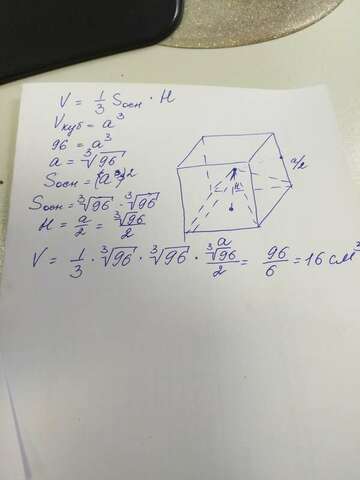 V = 1/3 Sосн · H
Vкуб = a³
96 = a³
a = ∛96
Sосн = (a)²
Sосн = ∛96 · ∛96
H = a/2 = ∛96/2
a/2
H
V = 1/3 · ∛96 · ∛96 · a ∛96/2 = 96/6 = 16 см³